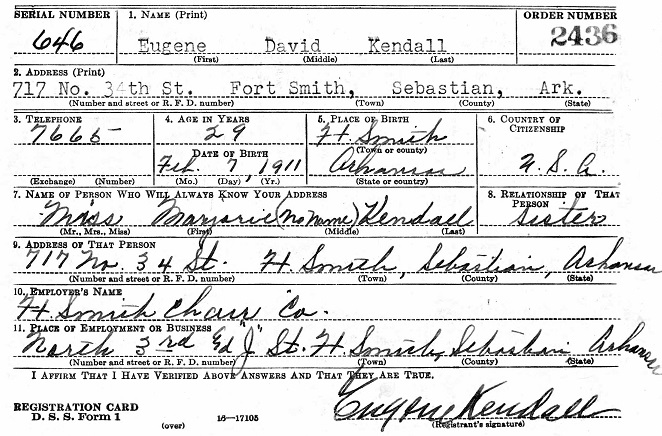 SERIAL NUMBER 1. NAME (Print) ORDER NUMBER
646 Eugene David Kendall 2436
(First) (Middle) (Last)
2. ADDRESS (Print)
717 No. 34th St. Fort Smith, Sebastian, Ark.
(Number and street or R. F. D. number) (Town) (County) (State)
3. TELEPHONE 4. AGE IN YEARS 5. PLACE OF BIRTH 6. COUNTRY OF CITIZENSHIP
7665 29 Ft. Smith
(Town or county)
DATE OF BIRTH
Feb. 7, 1911 Arkansas U. S. A.
(Exchange) (Number) (Mo.) (Day) (Yr.) (State or country)
7. NAME OF PERSON WHO WILL ALWAYS KNOW YOUR ADDRESS 8. RELATIONSHIP OF THAT PERSON
Miss Marjorie (No Name) Kendall Sister
(Mr., Mrs., Miss) (First) (Middle) (Last)
9. ADDRESS OF THAT PERSON
717 No. 34 St. Ft. Smith, Sebastian, Arkansas
(Number and street or R. F. D. number) (Town) (County) (State)
10. EMPLOYER'S NAME
Ft. Smith Chair Co.
11. PLACE OF EMPLOYMENT OR BUSINESS
North 3rd "J" St. Ft. Smith, Sebastian Arkansas
(Number and street or R. F. D. number) (Town) (County) (State)
I AFFIRM THAT I HAVE VERIFIED ABOVE ANSWERS AND THAT THEY ARE TRUE.
REGISTRATION CARD
D. S. S. Form 1 (over) 16—17105
Eugene Kendall
(Registrant's signature)